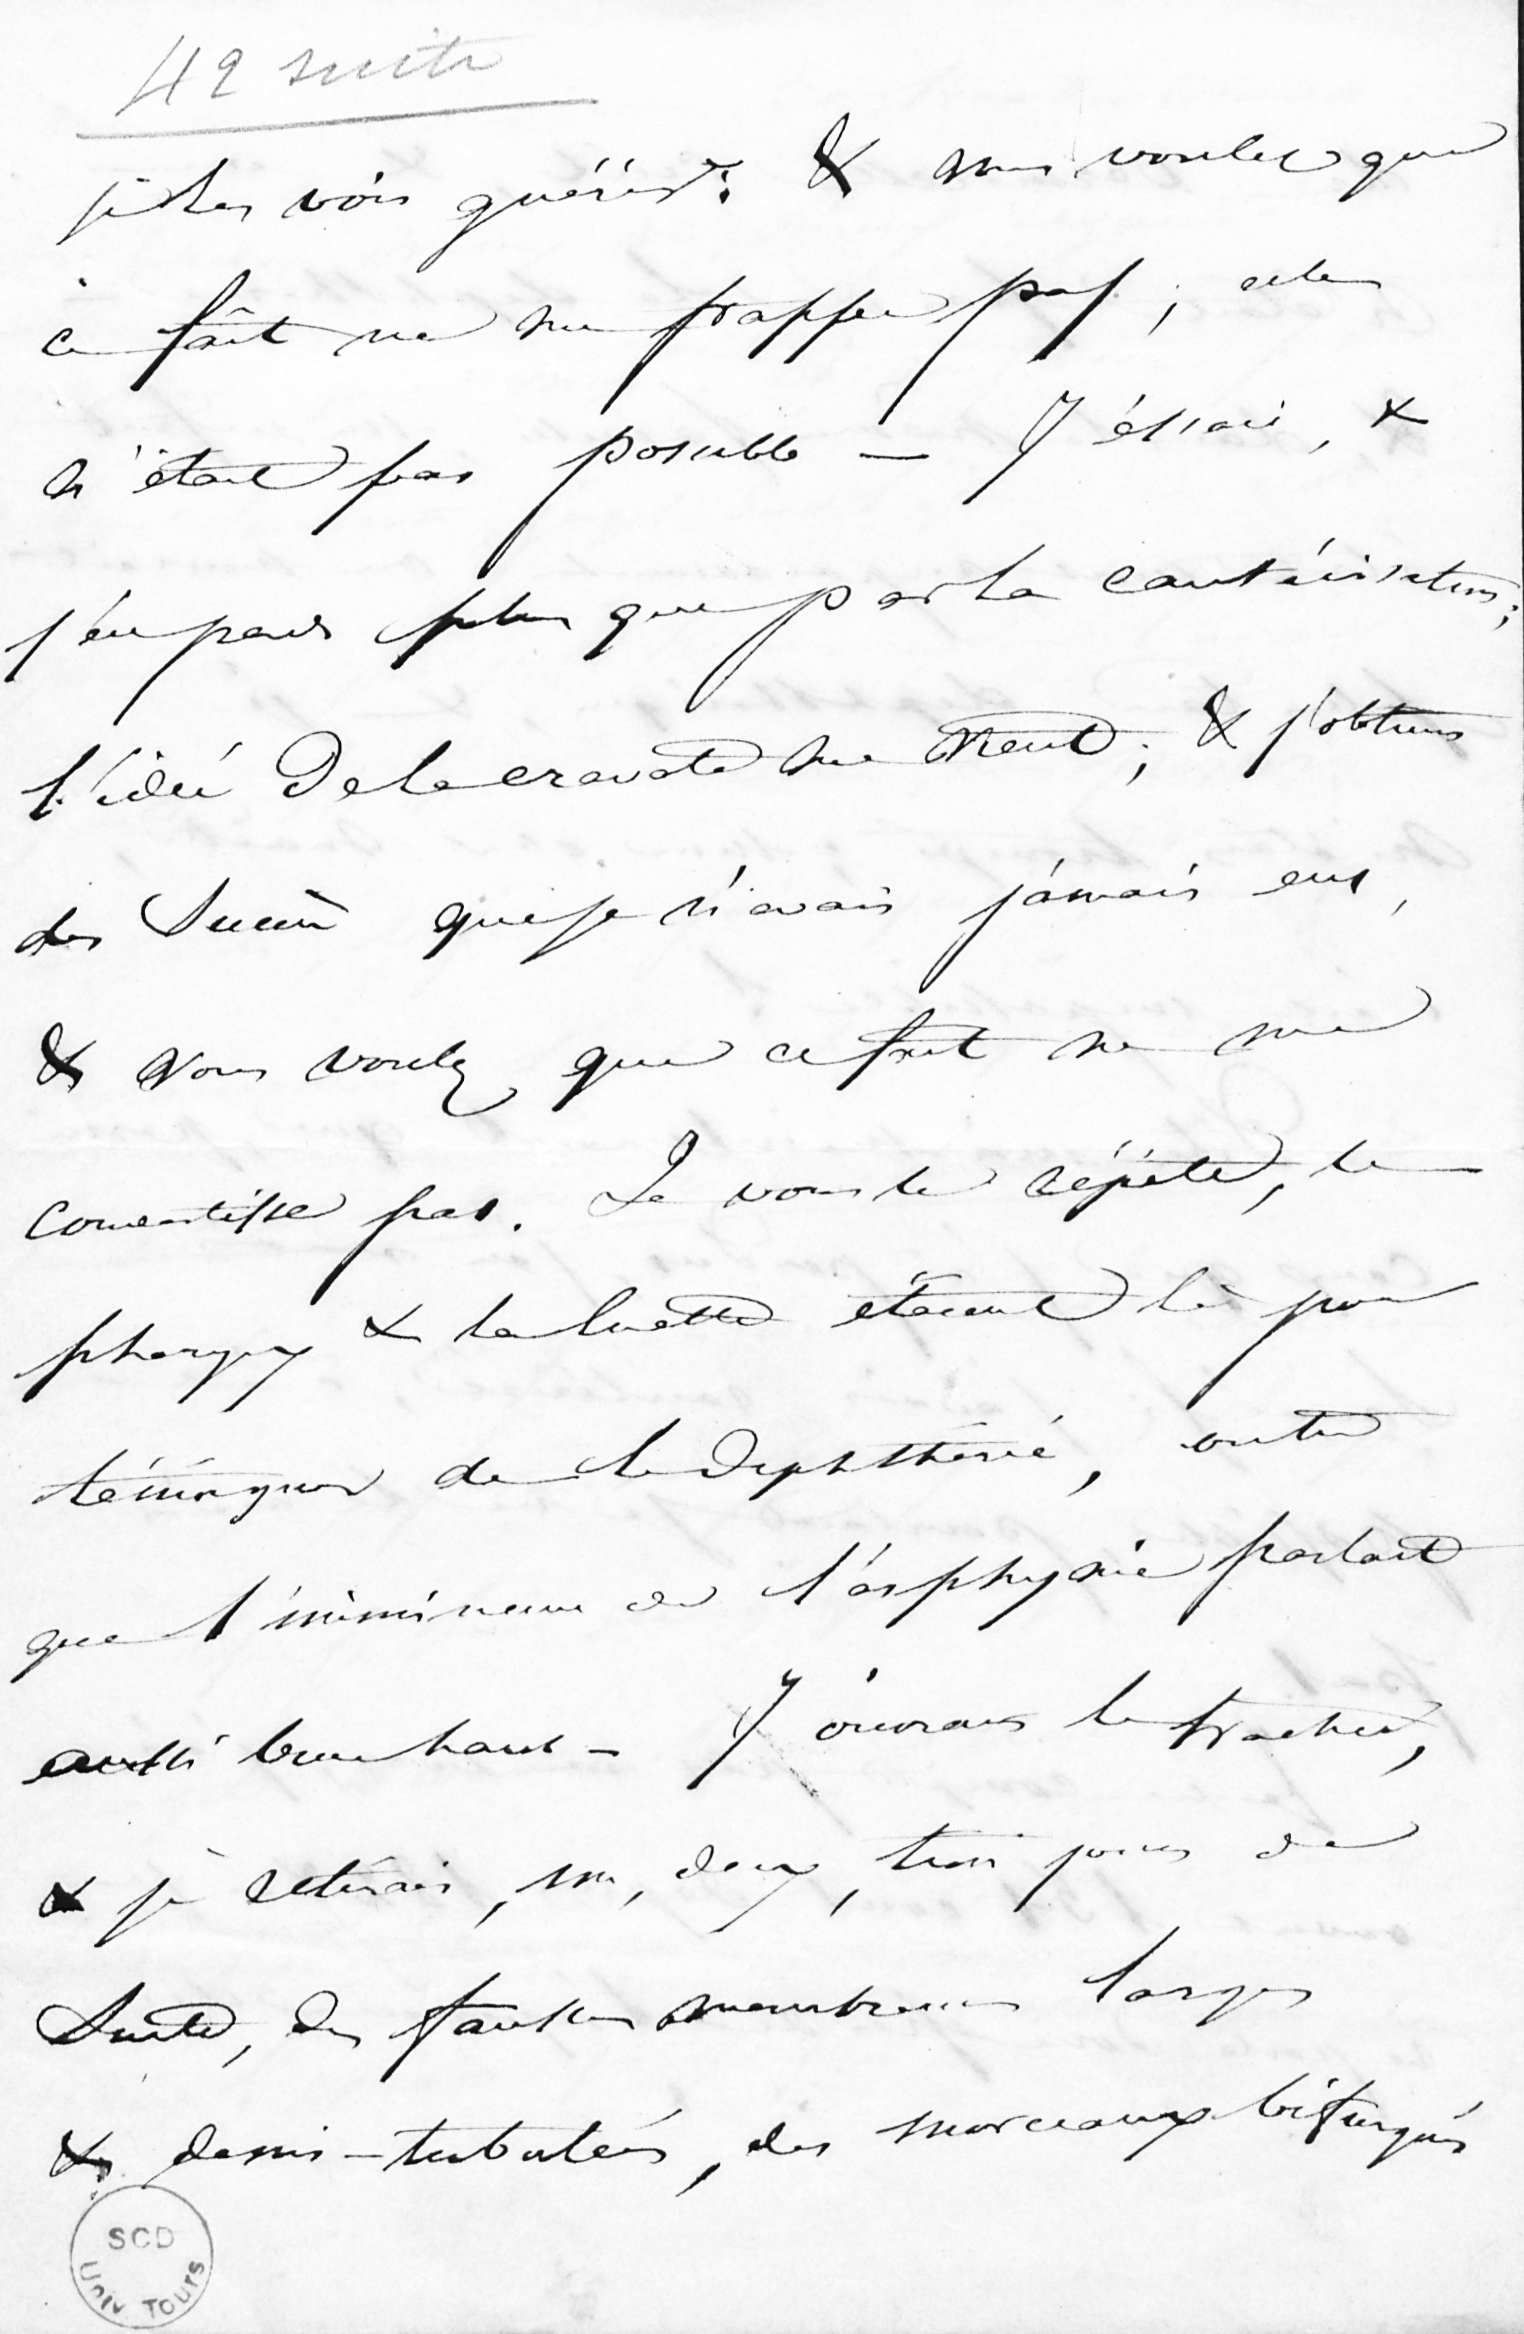 42 suite
je les vois guérir : & vous voulez que
ce fait ne me frappe pas ; cela
n'était pas possible — J'essaie, &
j'en perds plus que par la cautérisation ;
l'idée de la cravate me vient ; & j'obtiens
des succès que je n'avais jamais eus,
& vous voulez que ce fait ne me
convertisse pas. Je vous le répète, le
pharynx & la luette étaient là pour
témoigner de la diphthérie, outre
que l'imminence de l'asphyxie parlait
aussi bien haut — J'ouvrais la trachée,
& je retirais, un, deux, trois jours de
suite, des fausses membranes larges
& demi-tubulées, des morceaux bifurqués
SCD
Univ TOURS